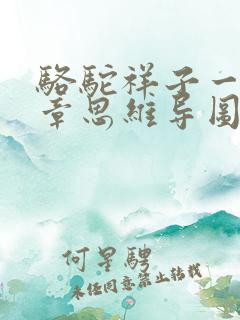 駱駝祥子一
章思維导图
何星騁
未经同意禁止转载